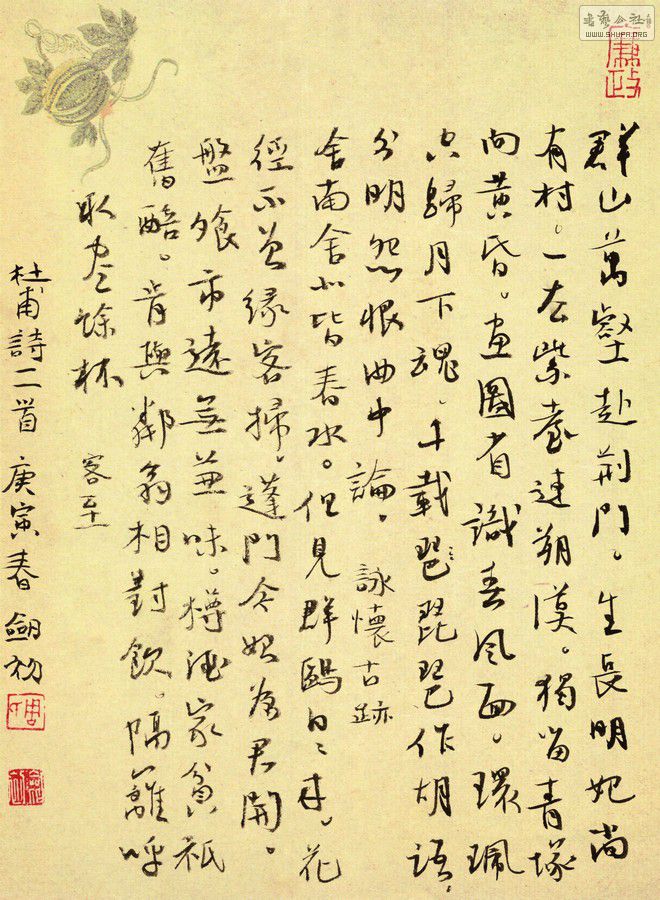 書法公社
WWW.SHUFA.ORG
群山萬壑赴荆門。生長明妃尚
有村。一去紫臺連朔漠。獨留青塚
向黃昏。画圖省識春風面。環珮
空歸月下魂。千載琶琵琶作胡語，
分明怨恨曲中論。
詠懷古跡
舍南舍北皆春水。但見群鷗日〻来。花
徑不曾緣客掃。蓬門今始為君開。
盤飧市遠無兼味。樽酒家貧衹
舊醅。肯與鄰翁相對飲。隔籬呼
取盡餘杯
客至
杜甫詩二首 庚寅春 劍初